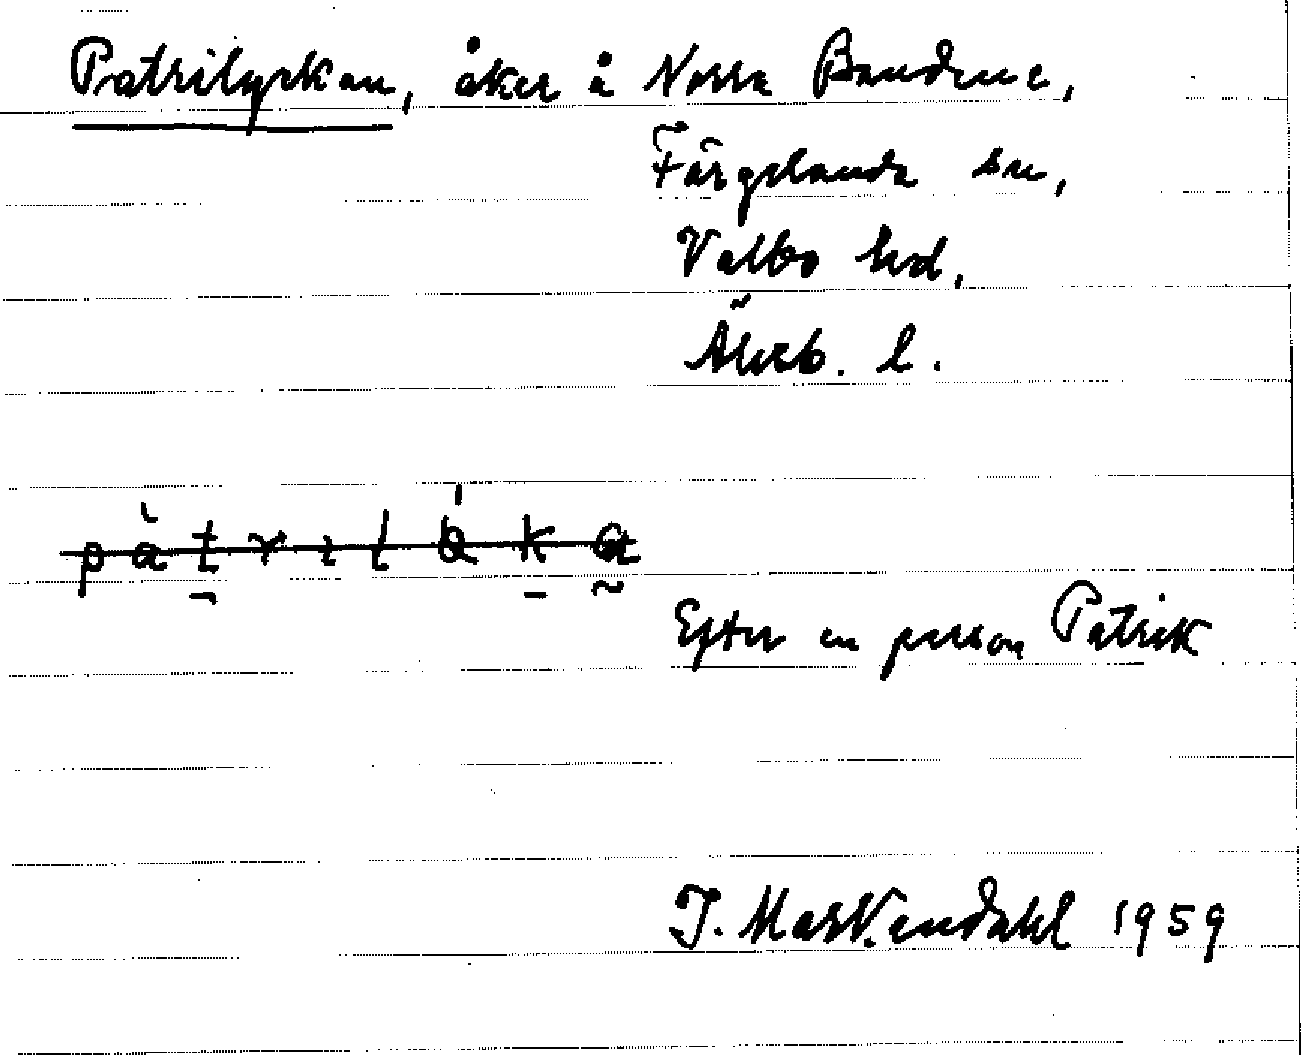 Patrilyckan, åker å Norra Bandene,
Färgelanda sn,
Valbo hd,
Älvsb. l.
Efter en person Patrik
J. Markendahl 1959